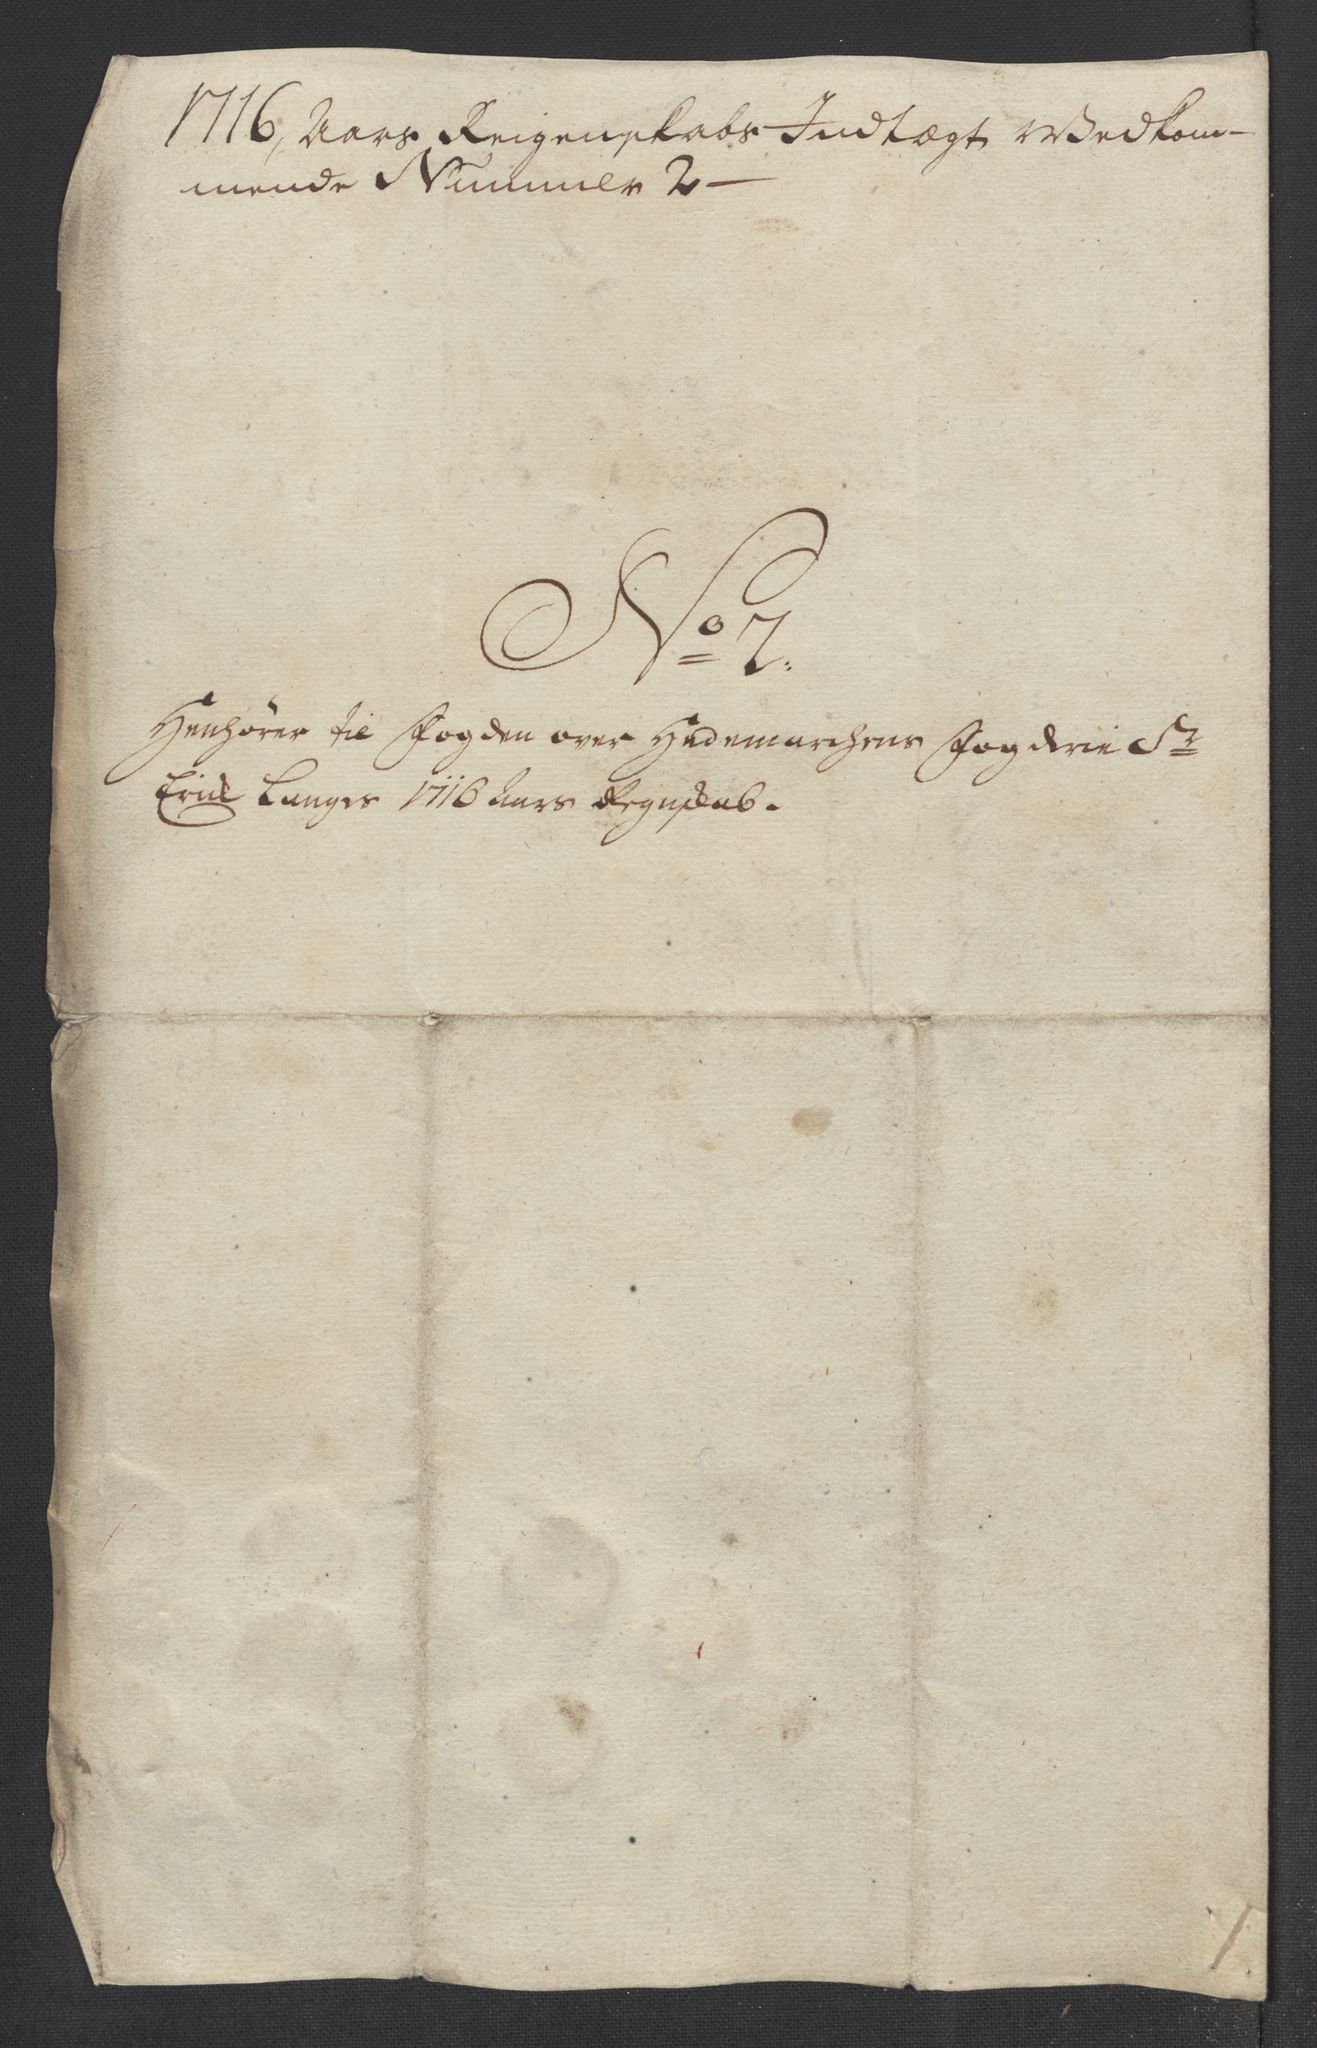 1716, Aars Reigenskabs Indtægt Wedkom-
mende Nummer 2
No 2.
Henhører til Fogden over Hedemarchens Fogderie Sr
Erick Langes 1716 Aars Regnskab.
1